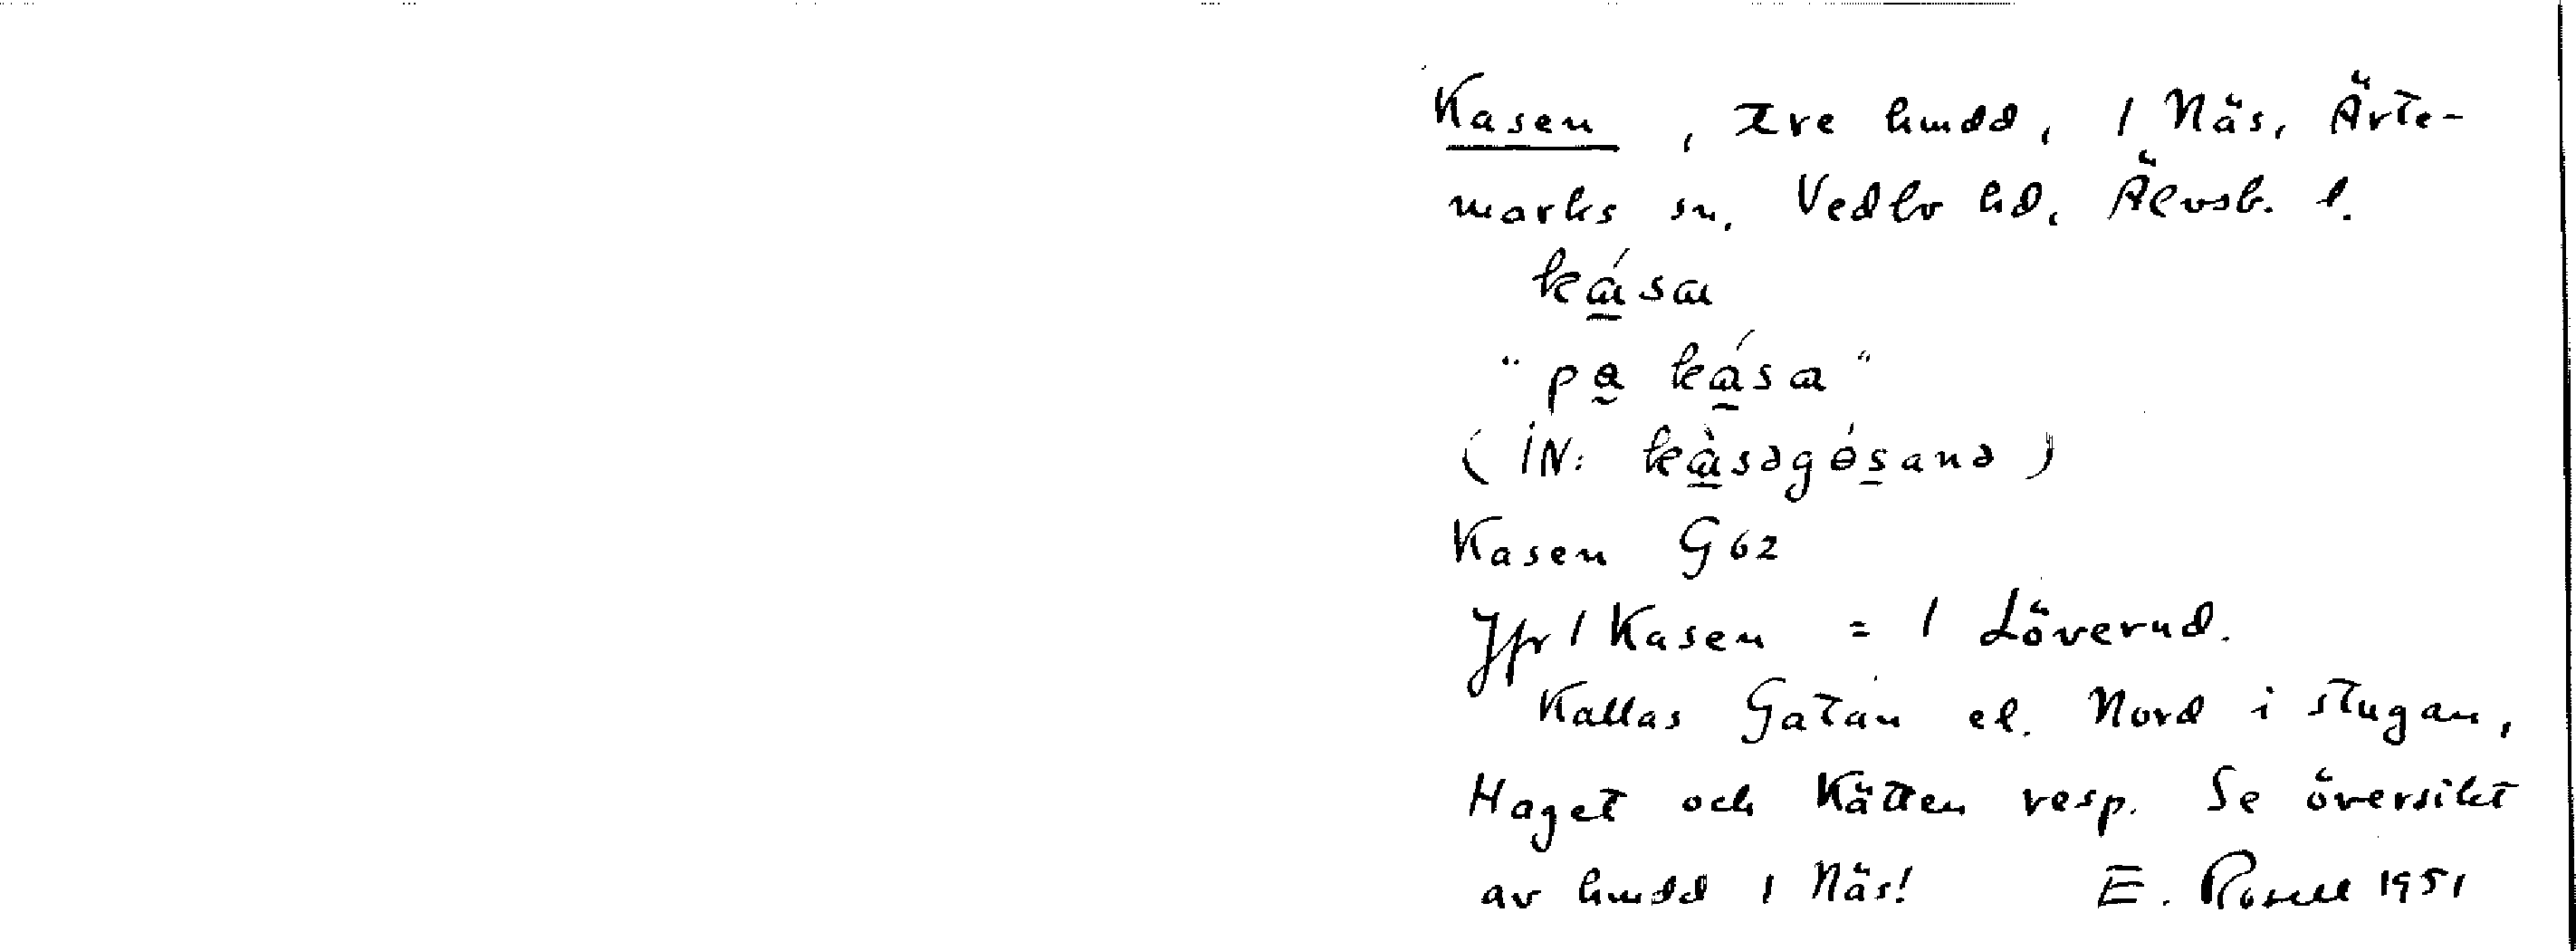 Kasen, tre hmdd, 1 Näs, Ärte-
marks sn, Vedbo hd, Älvsb. l.
kása
"pa kása"
(iN: kàsəgósanə)
Kasen G62
Jfr 1 Kasen = 1 Löverud.
Kallas Gatan el. Nord i stugan,
Haget och Kätten resp. Se översikt
av hmdd 1 Näs! E. Rosell 1951